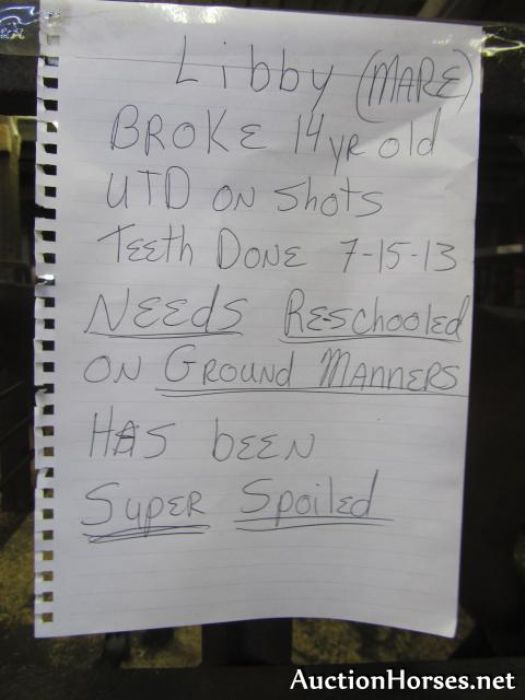 Libby (MARE)
BROKE 14 yr old
UTD ON Shots
Teeth Done 7-15-13
Needs Re-schooled
ON Ground Manners
Has been
Super Spoiled
AuctionHorses.net